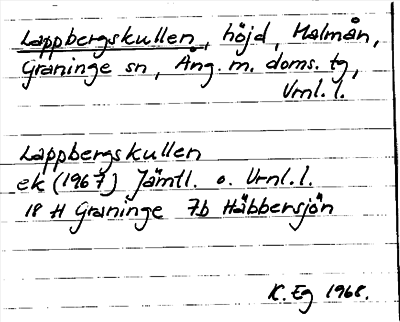 Lappbergskullen, höjd, Malmån,
Graninge sn, Ång. m. doms. tg,
Vrnl. l.
Lappbergskullen
ek (1967) Jämtl. o. Vrnl. l.
18 H Graninge 7b Häbbersjön
K. Eg 1968.